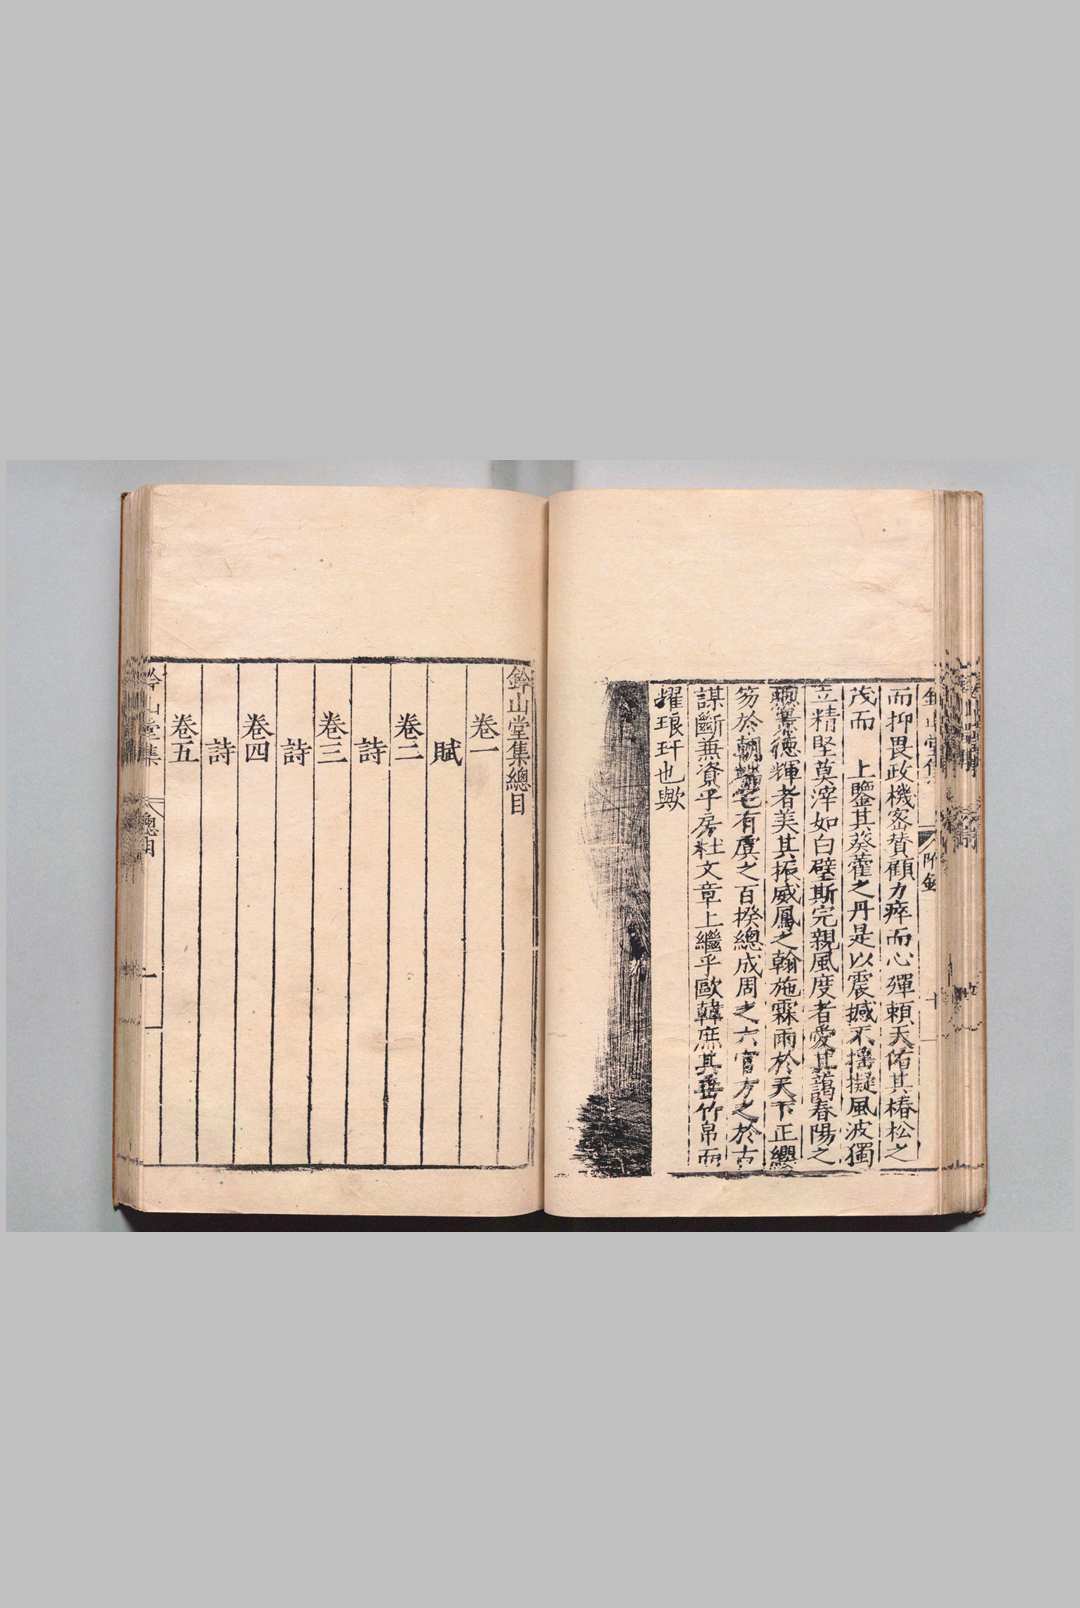 而抑畏政機密贊顧力瘁而心殫頼天佑其椿松之
茂而　上鑒其葵藿之丹是以震撼不搖擬風波獨
立精堅莫滓如白璧斯完親風度者愛其藹春陽之
德輝者美其拓威鳳之翰施霖雨於天下正纓
笏於朝宅有虞之百揆總成周之六官方之於古
謀斷兼資乎房杜文章上繼乎歐韓庶其垂竹帛而
耀琅玕也歟
鈐山堂集總目
卷一
賦
卷二
詩
卷三
詩
卷四
詩
卷五
鈐山堂集　總目　一